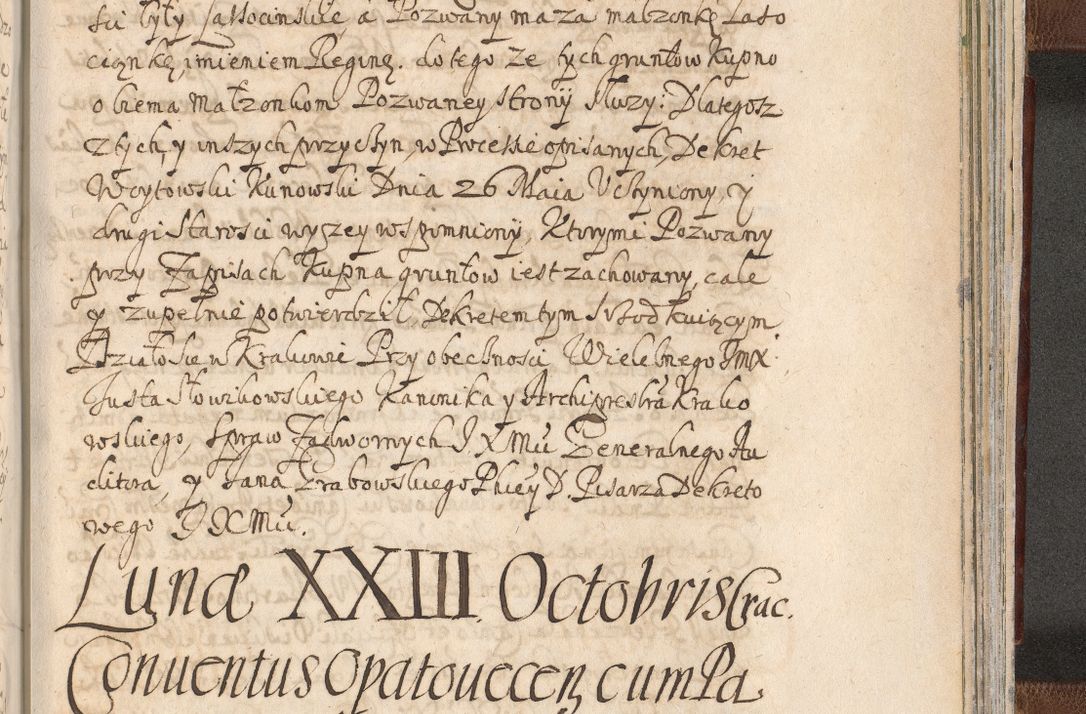 ści były Lassocinskie a Pozwany ma za małzonkę Laso
cinkę, imieniem Reginę. do tego ze tych gruntow Kupno
obiema Małzonkom Pozwaney strony słuzy: Dlategosz
z tych, y inszych przyczyn, w Processie opisanych, Dekret
Woytowski Kunowski Dnia 26 Maia Uczyniony, y
drugi Starosci wyszey wspomniony, Ktorymi Pozwany
przy Zapisach Kupna gruntow iest zachowany, cale
y zupełnie potwierdził, Dekretem tym
Działo sie w Krakowie Przy obecznosci Wielebnego JmX
Justa Słowikowskiego Kanonika y Archipresbra Krako
wskiego, Spraw Zadwornych JXMu Generalnego Au
ditora, y Jana Grabowskiego D. Pisarza Dekreto
wego JXMu.
Lunæ XXIII Octobris Crac.
Conuentus Opatouecen cum Pa